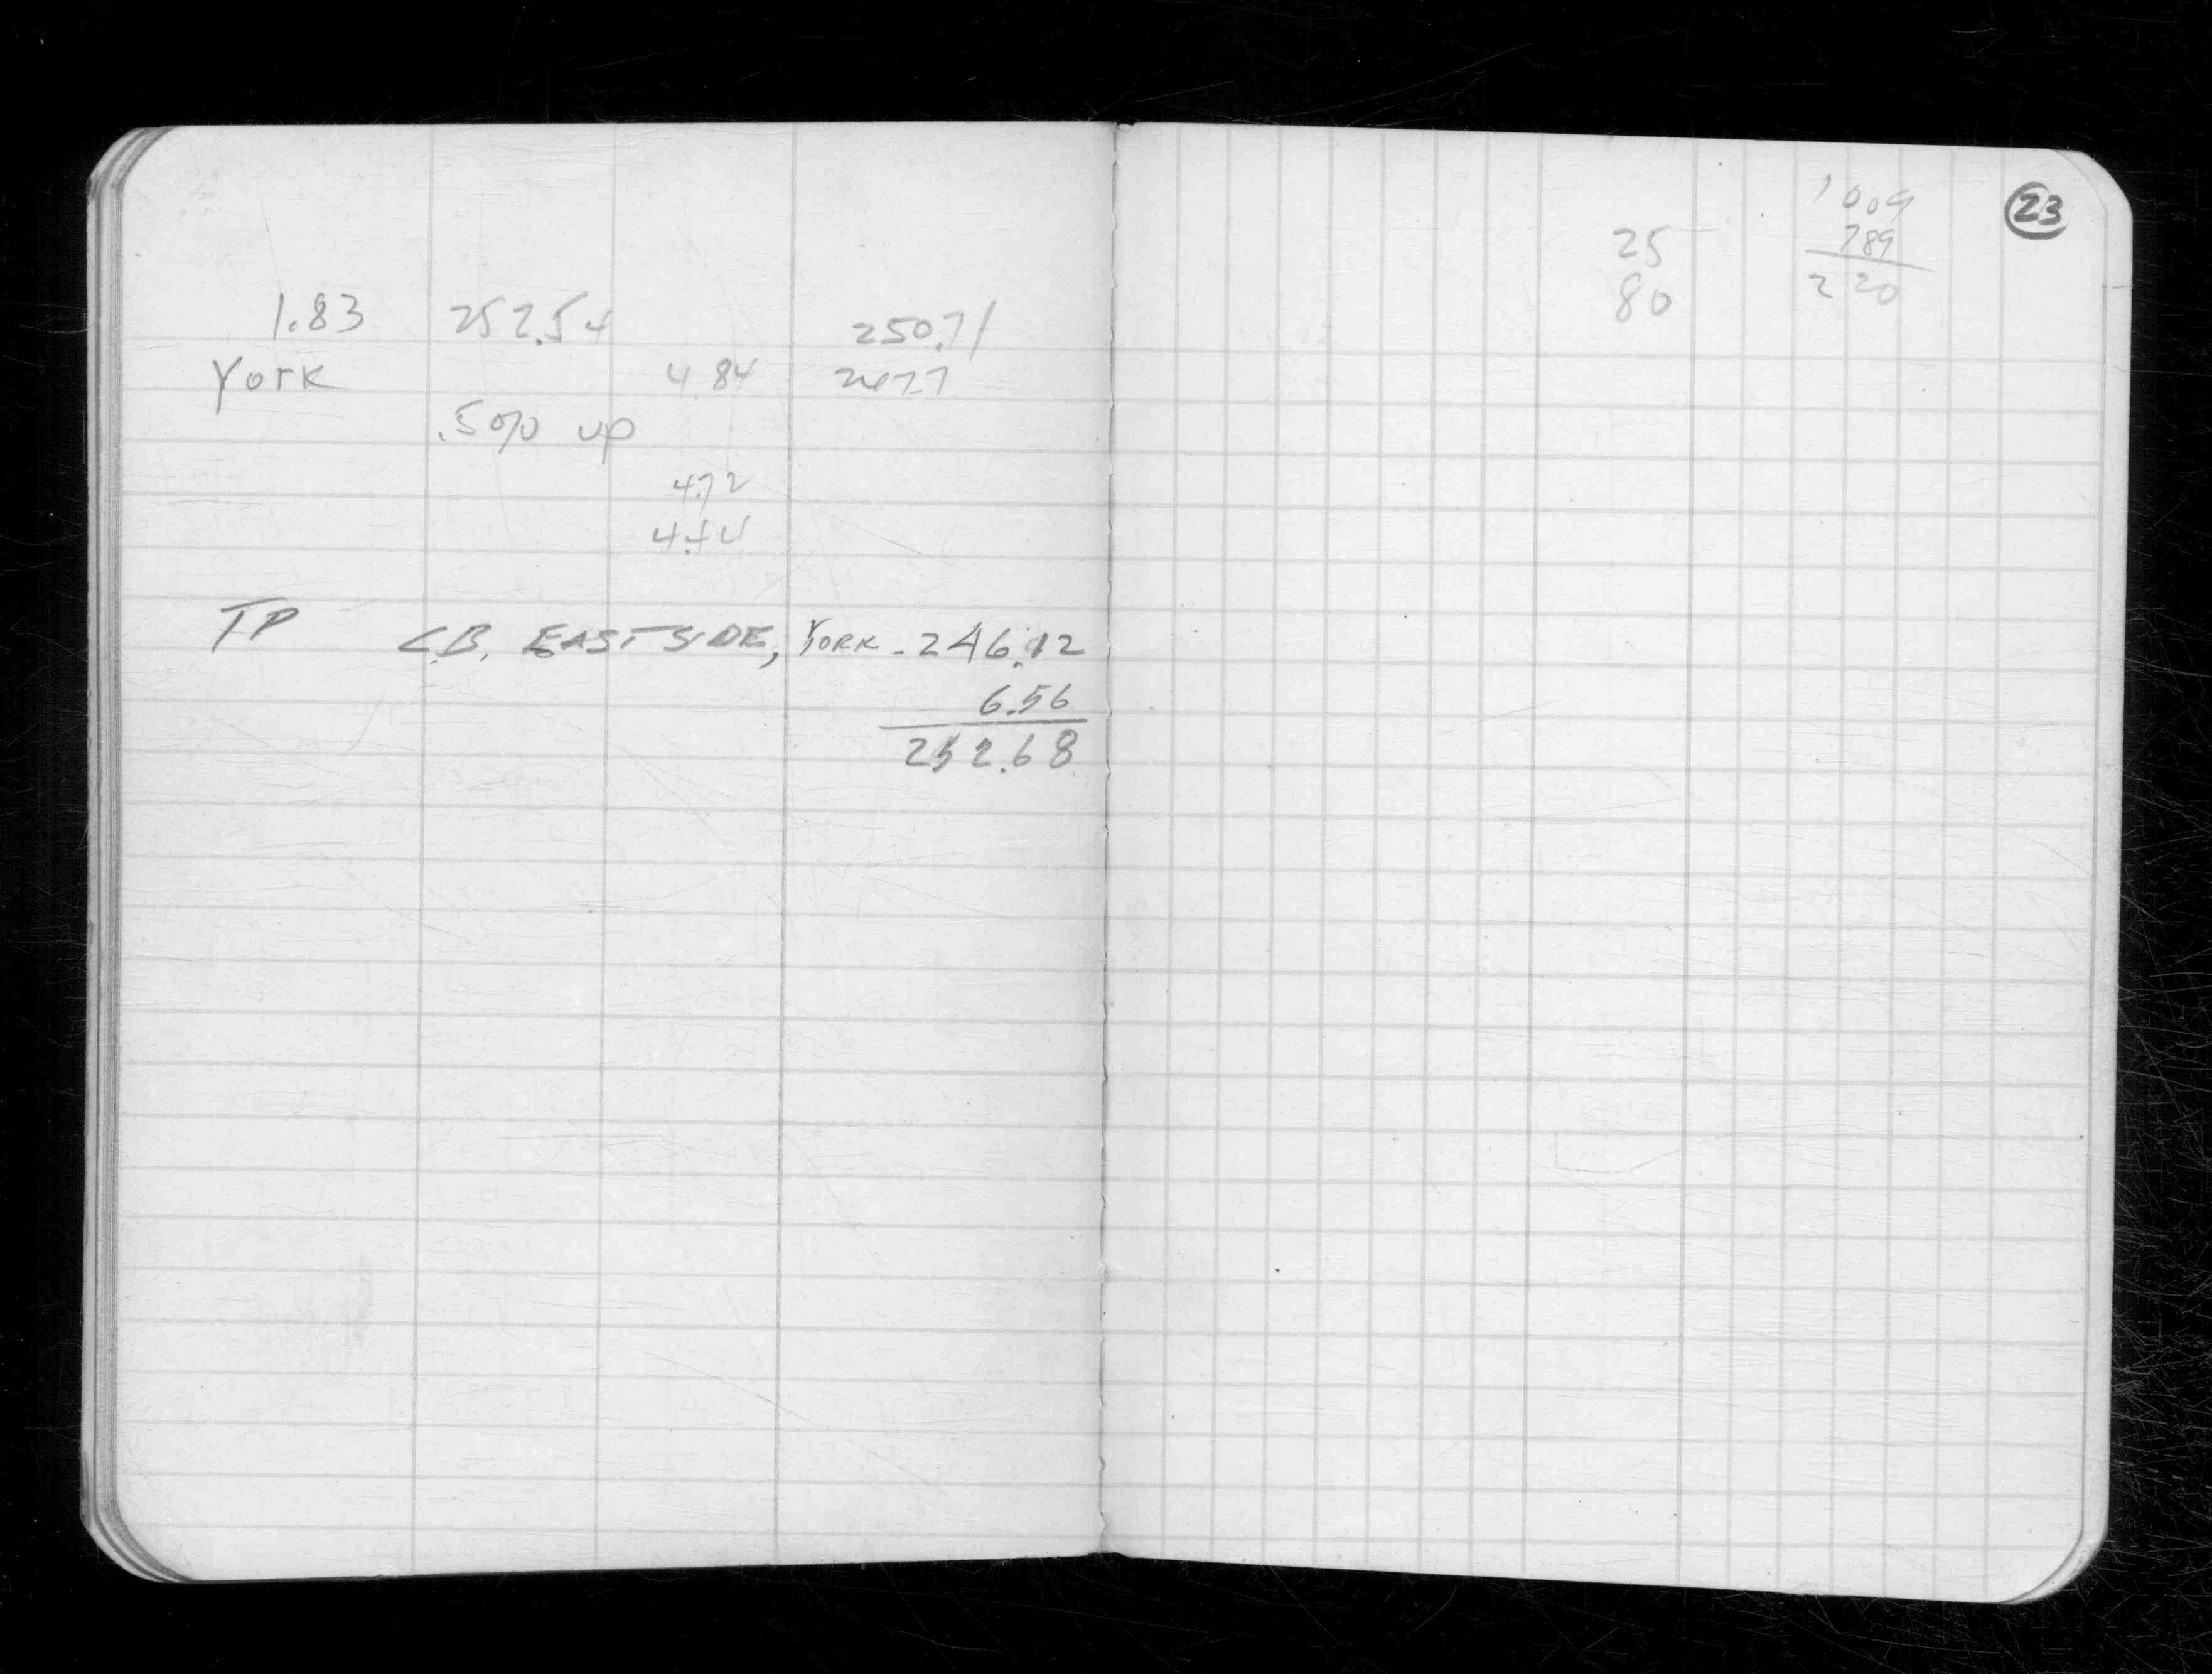 1.83 252.54 250.71
York 4.84 247.7
.50% up
4.72
4.44
TP C.B. EAST SIDE, YORK - 246.12
6.56
252.68
23
1009
25 789
80 220